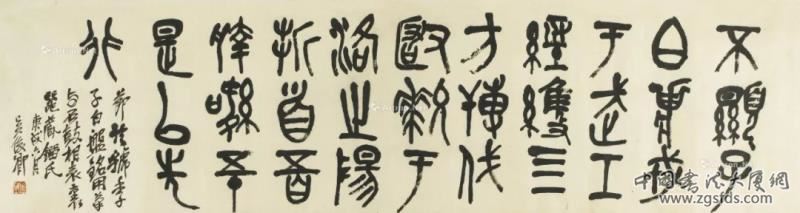 不顯子
白庸武
于戎工
經維四
方搏伐
玁狁于
洛之陽
折首五百
執訊五十
是以先
行
節臨虢季子
子白盤銘用筆
與石鼓相表裏
庚戌六月
吳俊卿
中国书法大厦网
www.zgsfds.com